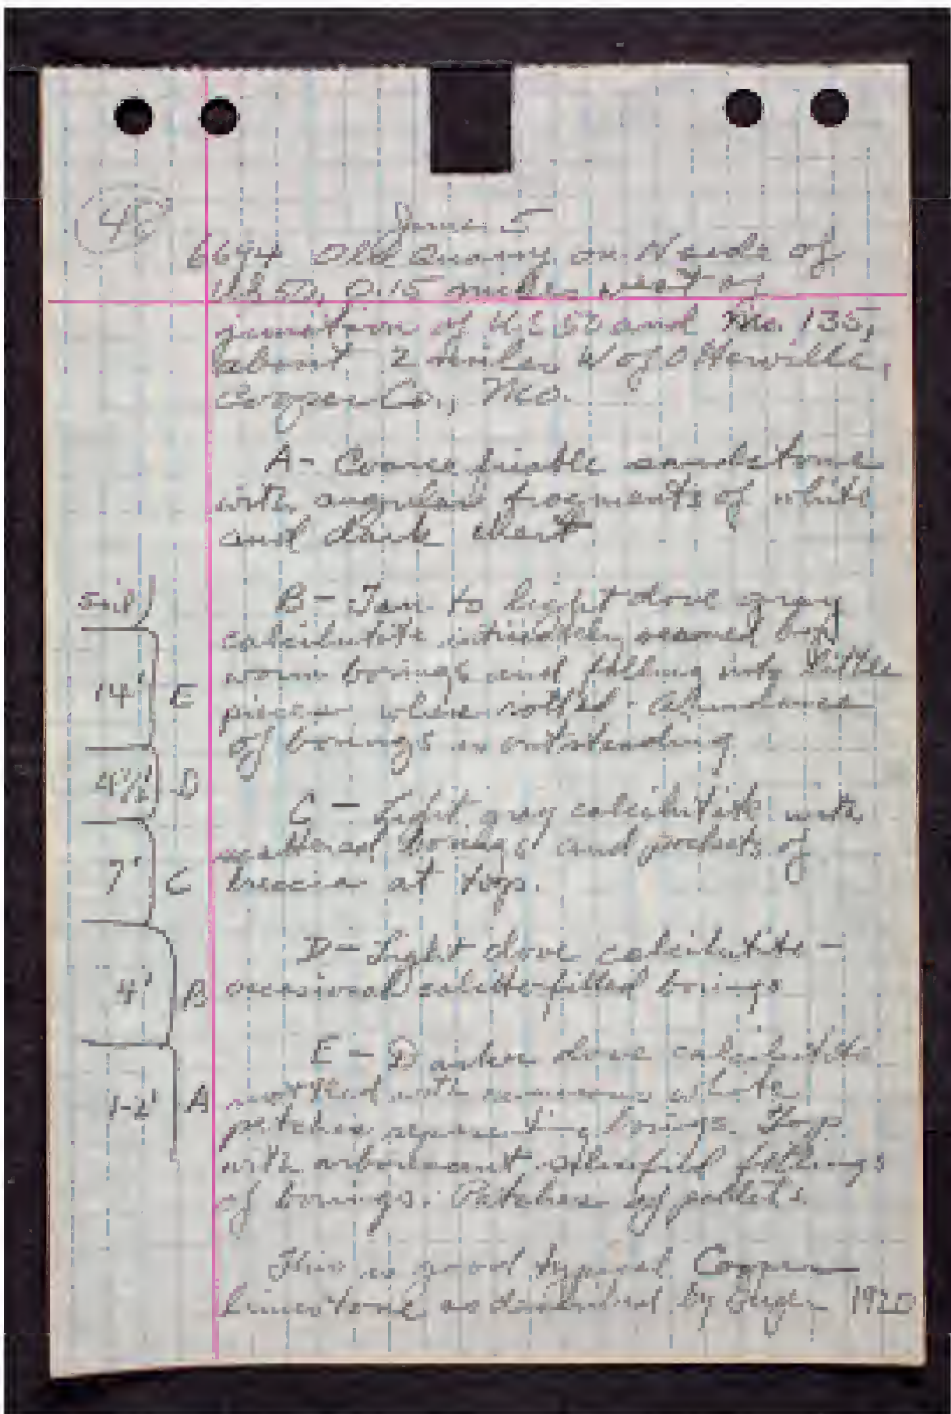 48
June 5
6694 Old Quarry on N side of
U.S. 50, 0.15 miles west of
junction of U.S. 50 and Mo. 135,
about 2 miles W of Otterville,
Cooper Co., Mo.
A - Coarse friable sandstone
with angular fragments of white
and dark chert.
B - Tan to light dove gray
calcilutite intricately seamed by
worm borings and falling into little
pieces when rotted. Abundance
of borings is outstanding.
C - Light gray calcilutite with
scattered borings and pockets of
breccia at top.
D - Light dove calcilutite -
occasional calcite filled borings
E - Darker dove calcilutite
mottled with numerous white
patches representing borings. Top
with arborescent silicified fillings
of borings. Patches of pellets.
This is good typical Cooper
limestone as described by 1920
Soil
14' E
4½' D
7' C
4' B
1-2' A